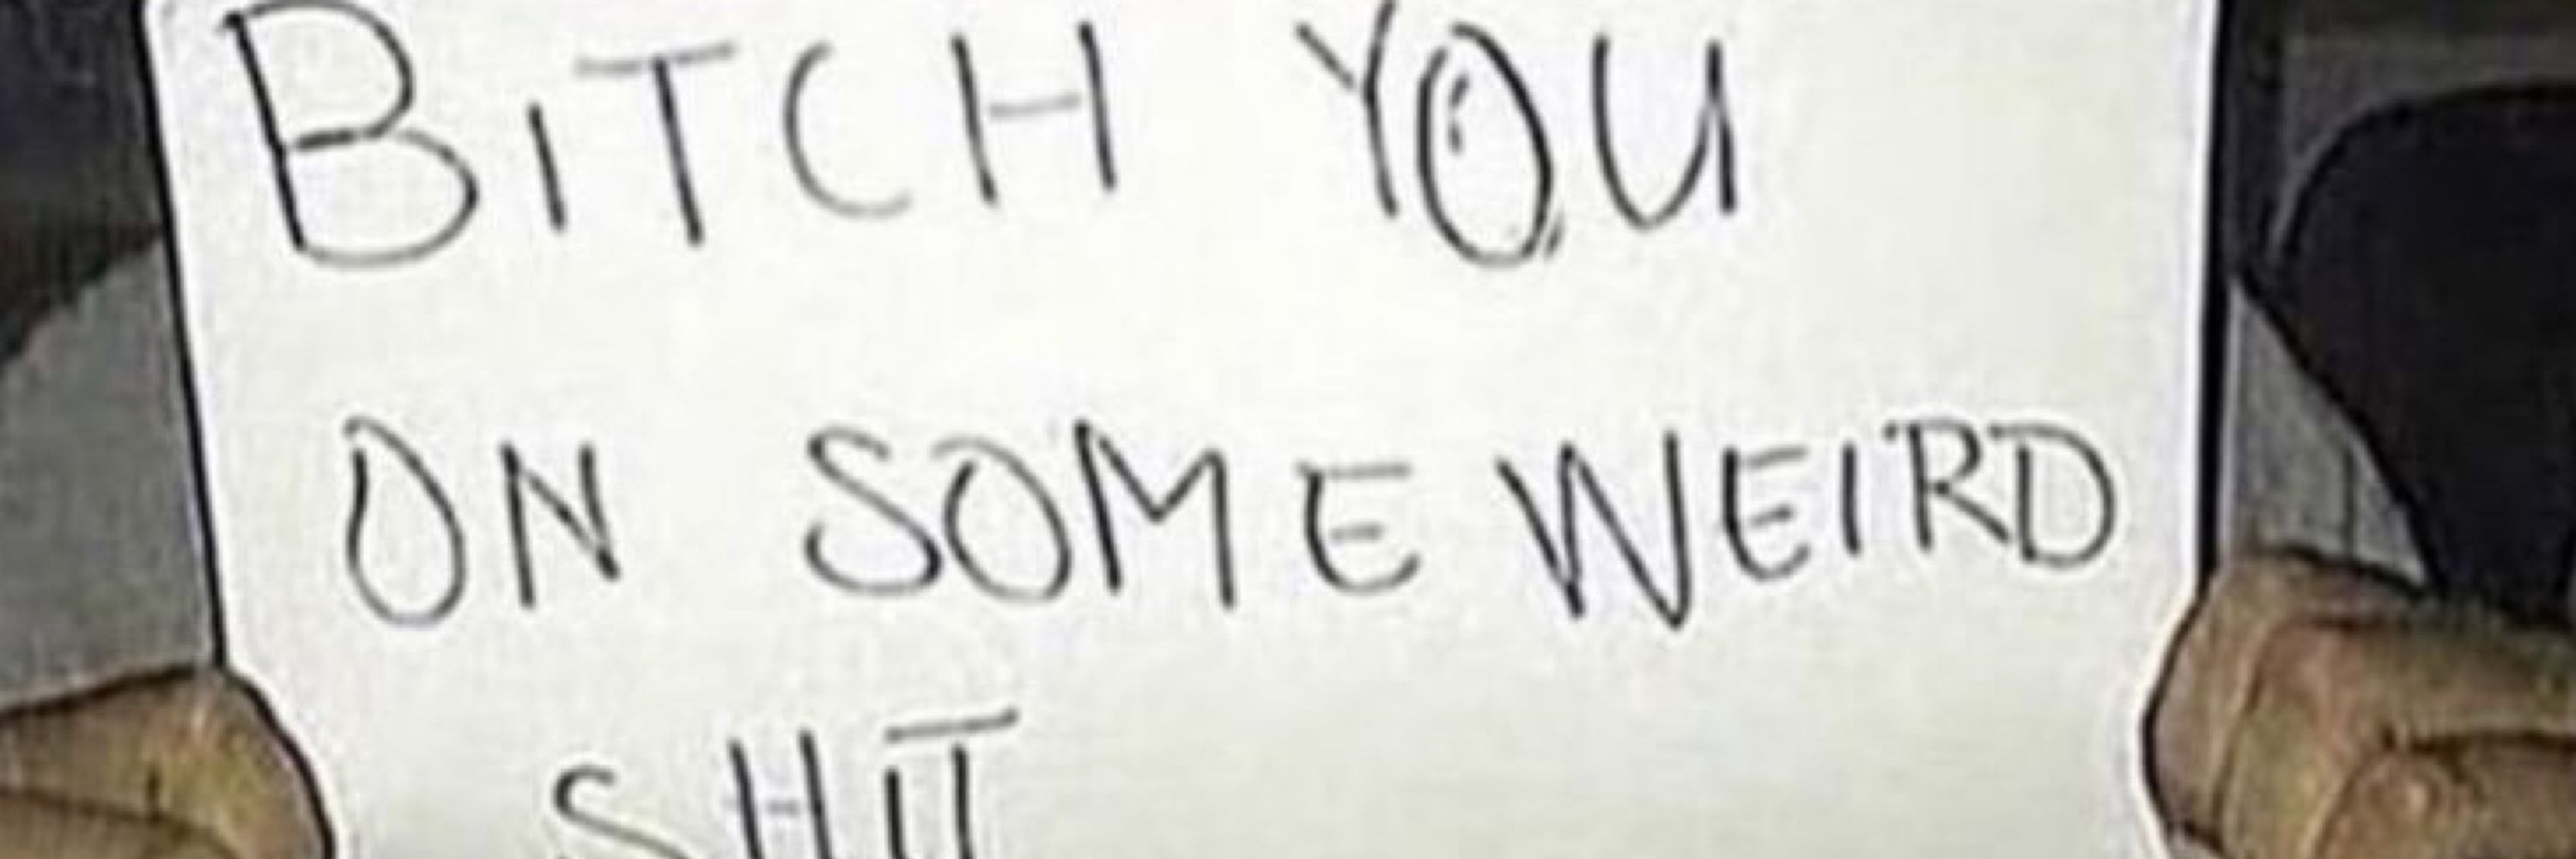 BiTCH YOU
ON SOME WEIRD
SHIT